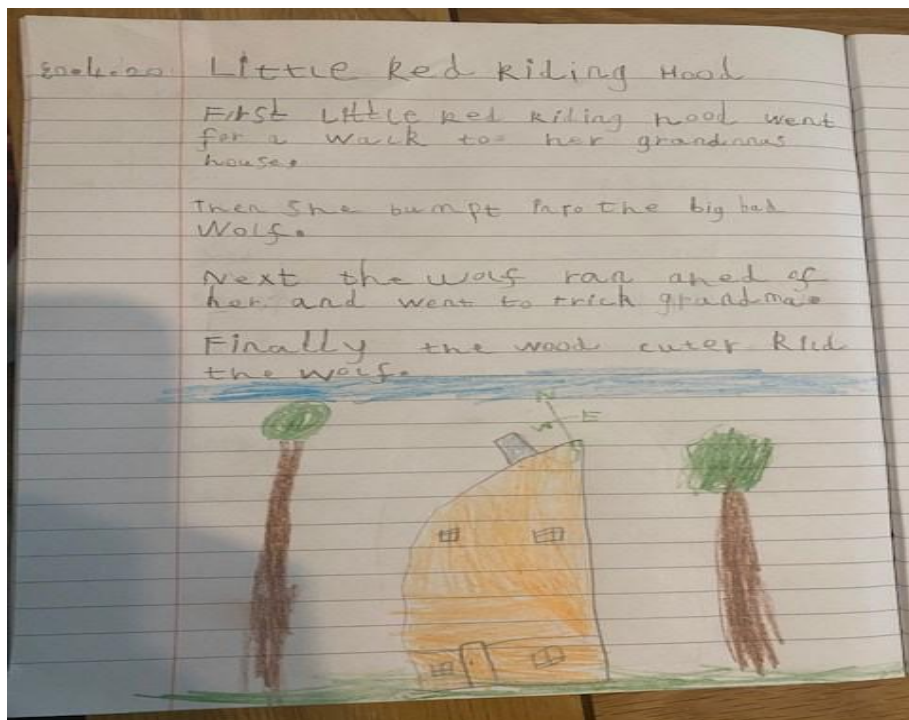 Little Red Riding Hood
First Little Red Riling hood went
for a walk to her grandmas
house.
Then she bumpt into the big bad
Wolf.
Next the wolf ran ahed of
her and went to trick grandma.
Finally the wood cuter kild
the wolf.
N
E